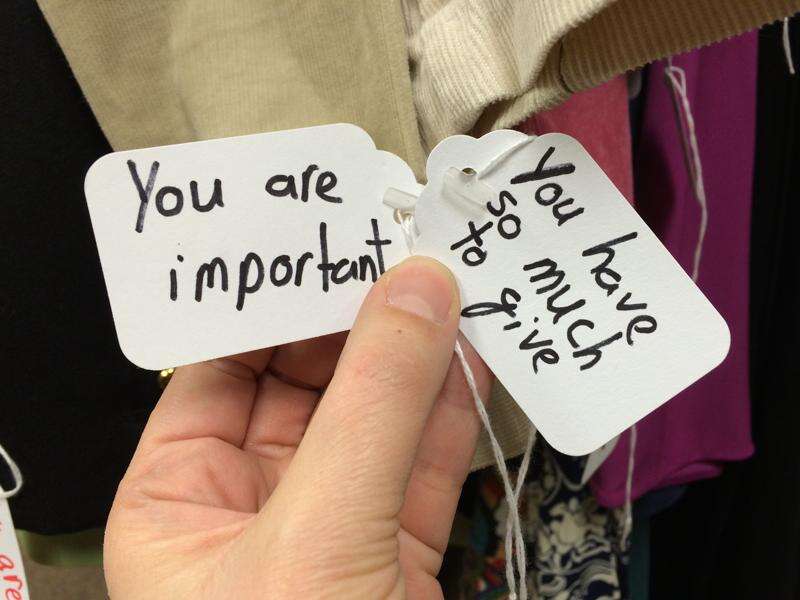 You are
important
You have
so much
to give
are